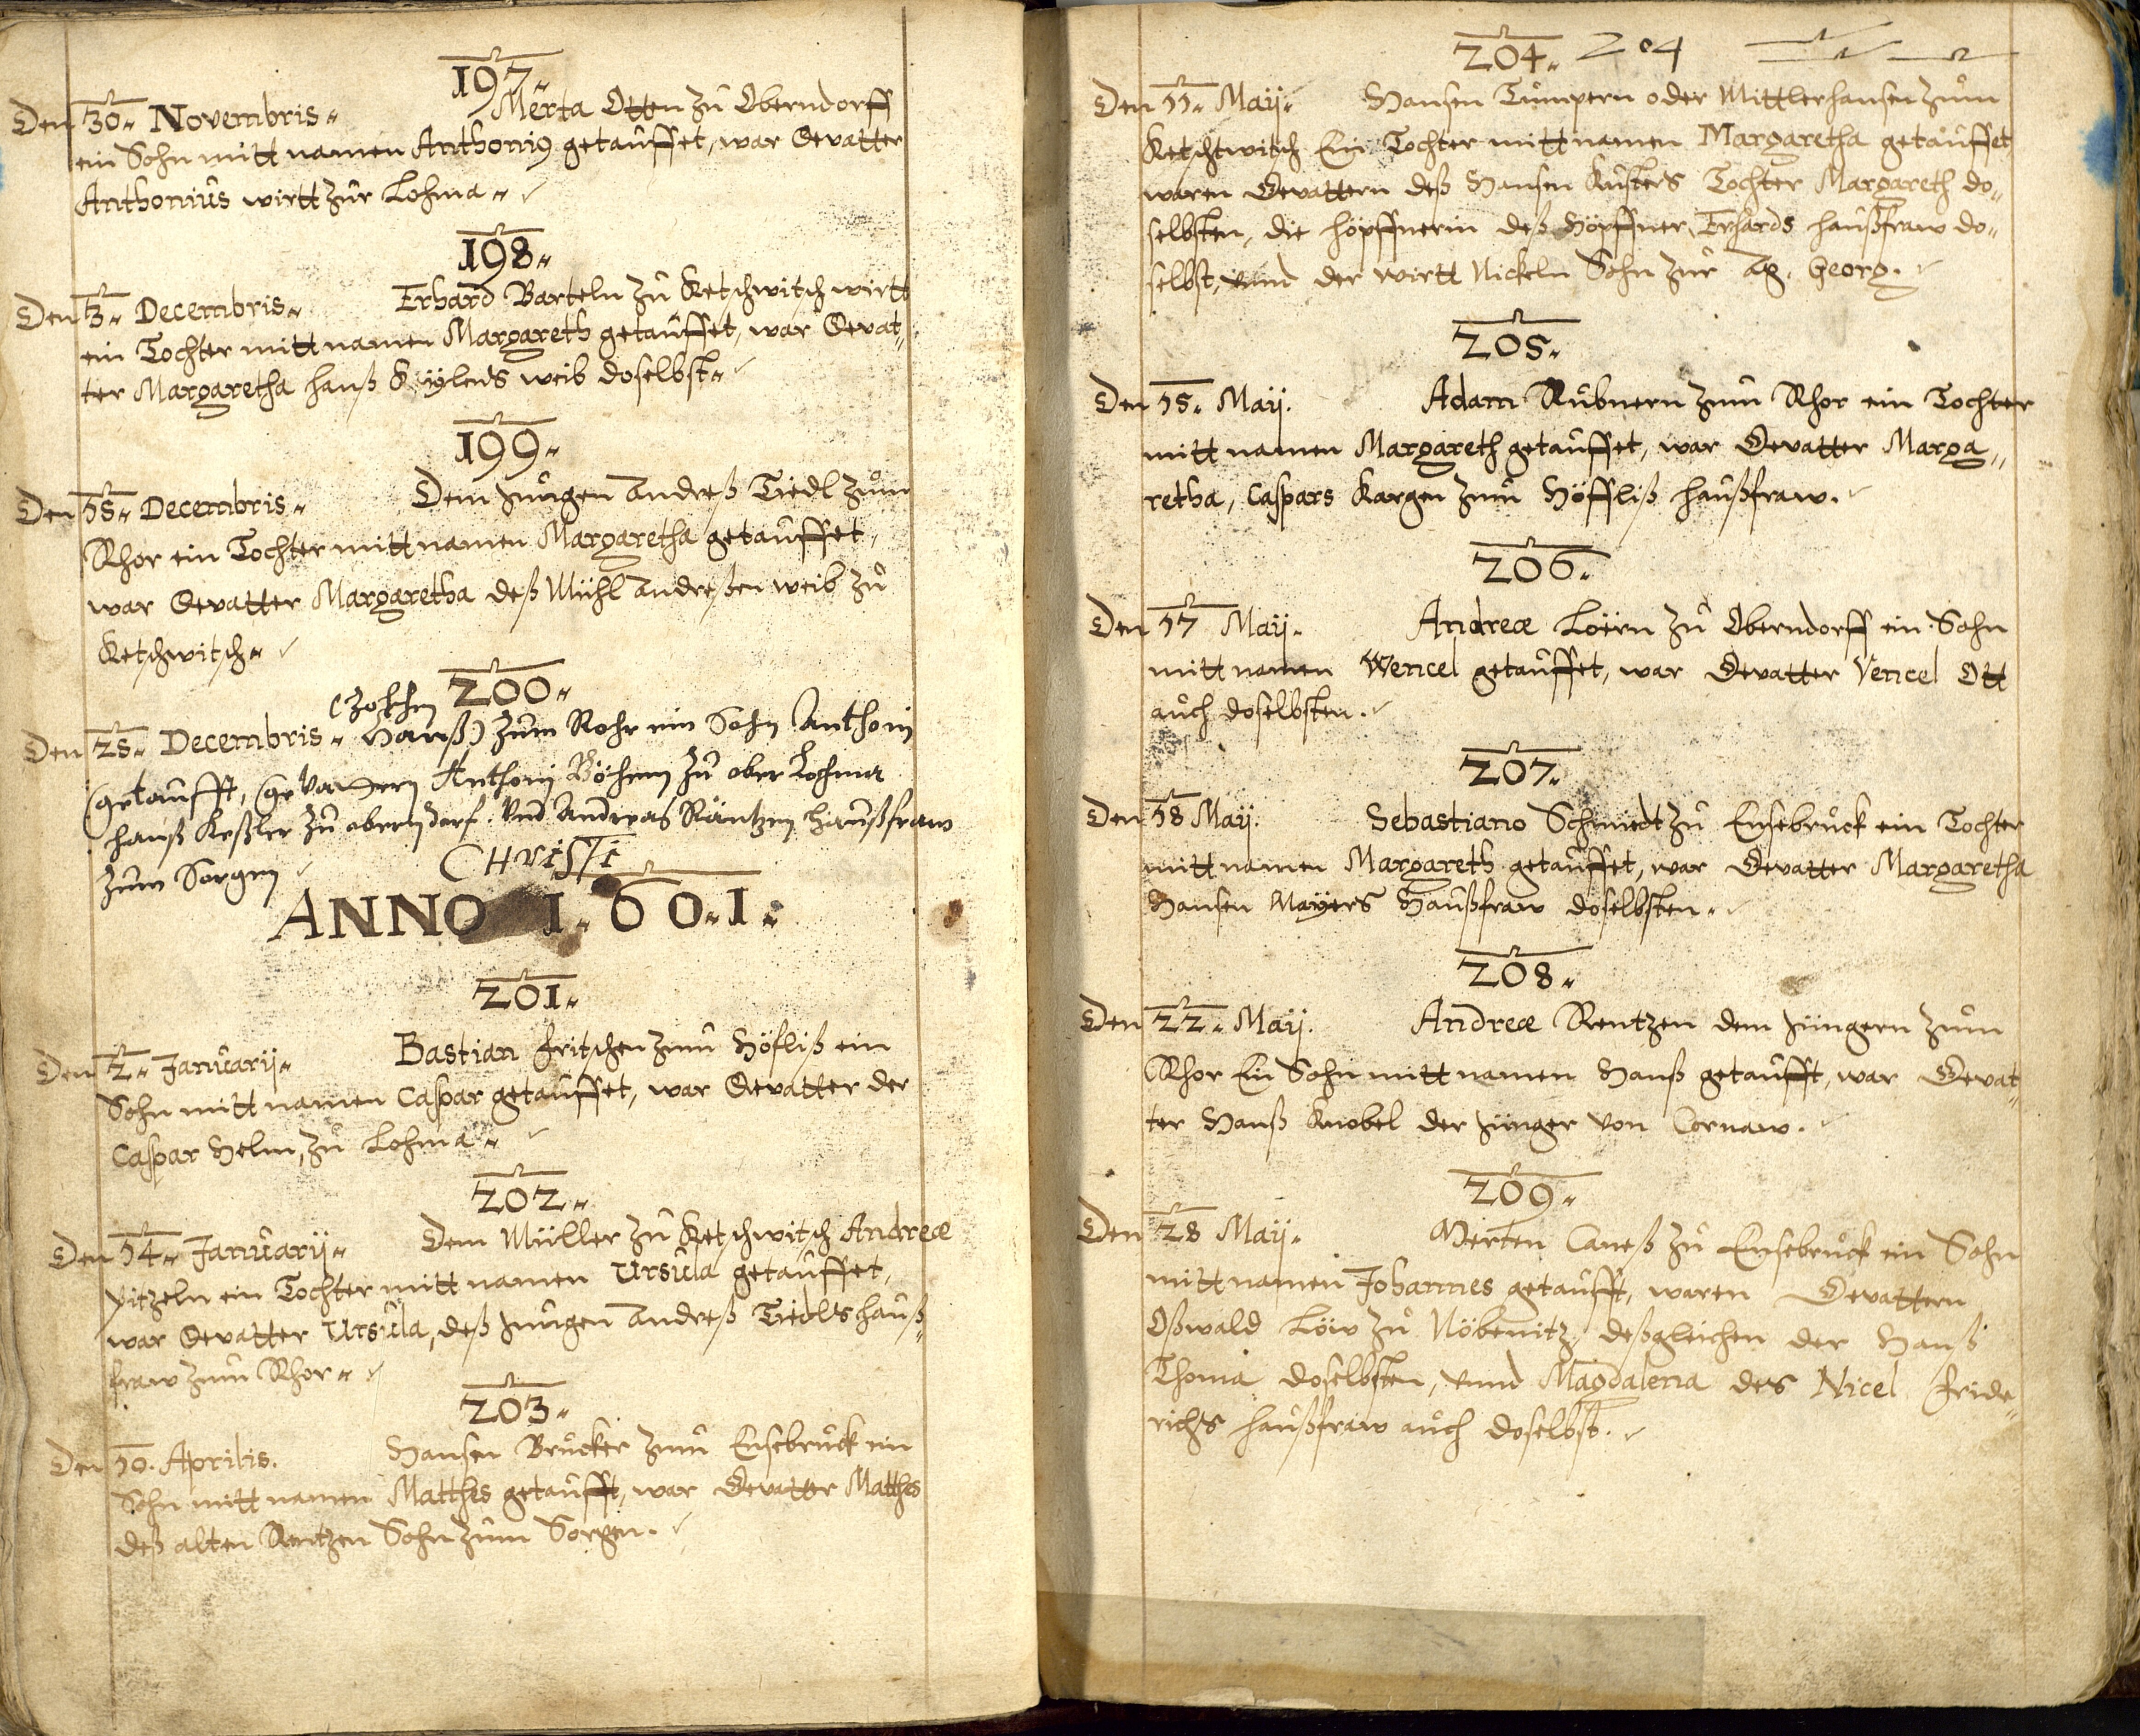 197.
Den 30. Novembris. Merta Otten zu Oberndorff
ein Sohn mitt namen Anthonig getauffet, war Gevatter
Anthonius wirtt zur Lohma.
198.
Den 3. Decembris. Erhard Barteln zu Ketschwitsch wirtt
ein Tochter mitt namen Margareth getauffet, war Gevat„
ter Margaretha hanß weib doselbst.
199.
Den 18. Decembris. Dem Jungen Andreß Tiedl zum
Rhor ein Tochter mitt namen Margaretha getauffet,
war Gevatter Margaretha deß Mühl Andreßen weib zu
Ketschwitsch.
200.
Den 25. Decembris. Hanß) zum Rohr ein Sohn Anthoni
getaufft, Gevattern Anthoni Böhem zu ober Lohma
hanß Keßler zu oberndorf. Und Andreas Räntzen haußfraw
zum Sorgen
Christi
ANNO 1.60.1.
201.
Den 2. Januarij. Bastian fritschen zum Höfliß ein
Sohn mitt namen Caspar getauffet, war Gevatter der
Caspar Helm, zu Lohma.
202.
Den 14. Januarij. Dem Müller zu Ketschwitsch Andreæ
pitzeln ein Tochter mitt namen Ursula getauffet,
war Gevatter Ursula, deß Jungen Andreß Tiedls hauß„
fraw zum Rhor.
203.
Den 10. Aprilis. Hansen Brucker zum Ensebruck ein
Sohn mitt namen Matthes getaufft, war Gevatter Matthes
deß alten Rentzen Sohn zum Sorgen.
204. 204
Den 11. Maij. Hansen Tümpern oder Mittlerhansen zum
Ketschtwitsch Ein Tochter mitt namen Margaretha getauffet,
waren Gevattern deß Hansen Kusters Tochter Margareth do„
selbsten, die höpffnerin deß Höpffner Erhards haußfraw do„
selbst, vnnd der wirtt Nickeln Sohn zur Georg.
205.
Den 15. Maij. Adam Rubnern zum Rhor ein Tochter
mitt namen Margareth getauffet, war Gevatter Marga„
retha, Caspars Kargen zum Höffliß haußfraw.
206.
Den 17 Maij. Andreæ Loirn zu Oberndorff ein Sohn
mitt namen Wencel getauffet, war Gevatter Vencel Ott
auch doselbsten.
207.
Den 18 Maij. Sebastiano Schmidt zu Ensebruck ein Tochter
mitt namen Margareth getauffet, war Gevatter Margaretha
Hansen Mayers Haußfraw doselbsten.
208.
Den 22. Maij. Andreæ Rentzen dem Jüngern zum
Rhor Ein Sohn mitt namen Hanß getaufft, war Gevat„
ter Hanß Knobel der Jünger von Cornaw.
209.
Den 28 Maij. Merten Caneß zu Ensebruck ein Sohn
mitt namen Johannes getaufft, waren Gevattern
Oßwald Löw zu Nöbenitz, deßgleichen der Hanß
Thoma doselbsten, vnnd Magdalena des Nicel fride„
richs haußfraw auch doselbst.